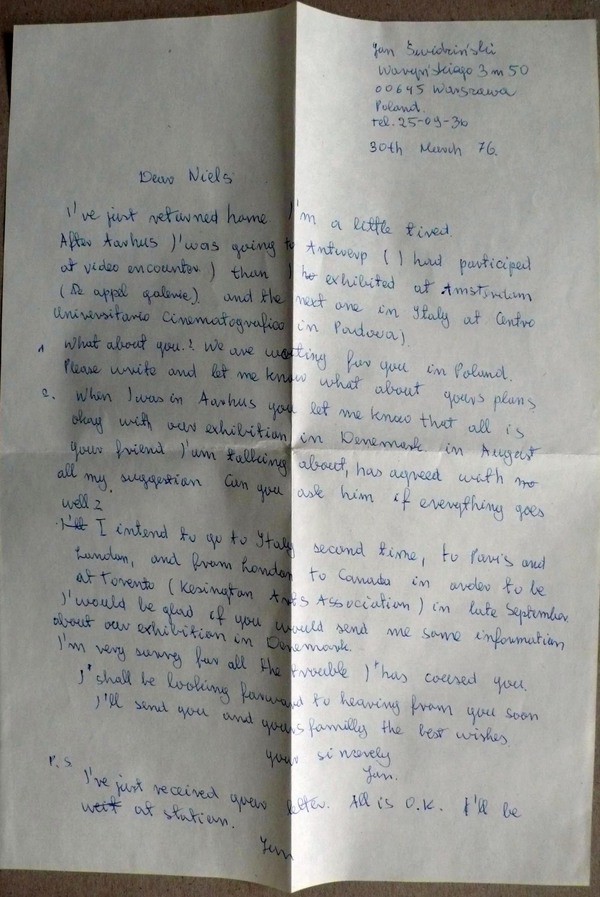 Jan Świdziński
Waryńskiego 3 m 50
00645 Warszawa
Poland.
tel. 25-09-36
30th March 76.
Dear Niels
I've just returned home I'm a little tired.
After Aarhus I was going to Antwerp (I had participed
at video encounter) than I exhibited at Amsterdam
(De appel galerie) and the next one in Italy at Centro
Universitario Cinematografico in Padova).
1 What about you.? We are waiting for you in Poland.
Please write and let me know what about yours plans
2. When I was in Aarhus you let me know that all is
okay with our exhibition in Denemark in August
your friend I'am talking about, has agreed with
all my suggestion Can you ask him if everything goes
well?
I intend to go to Italy second time, to Paris and
London, and from London to Canada in order to be
at Toronto (Kesington Arts Association) in late September
I'would be glad if you would send me some information
about our exhibition in Denemark.
I'm very sorry for all the trouble I'has coused you.
I'shall be looking forward to hearing from you soon
I'll send you and yours familly the best wishes
your sincerely
Jan.
P.S.
I've just received your letter. All is O.K. I'll be
at station.
Jan